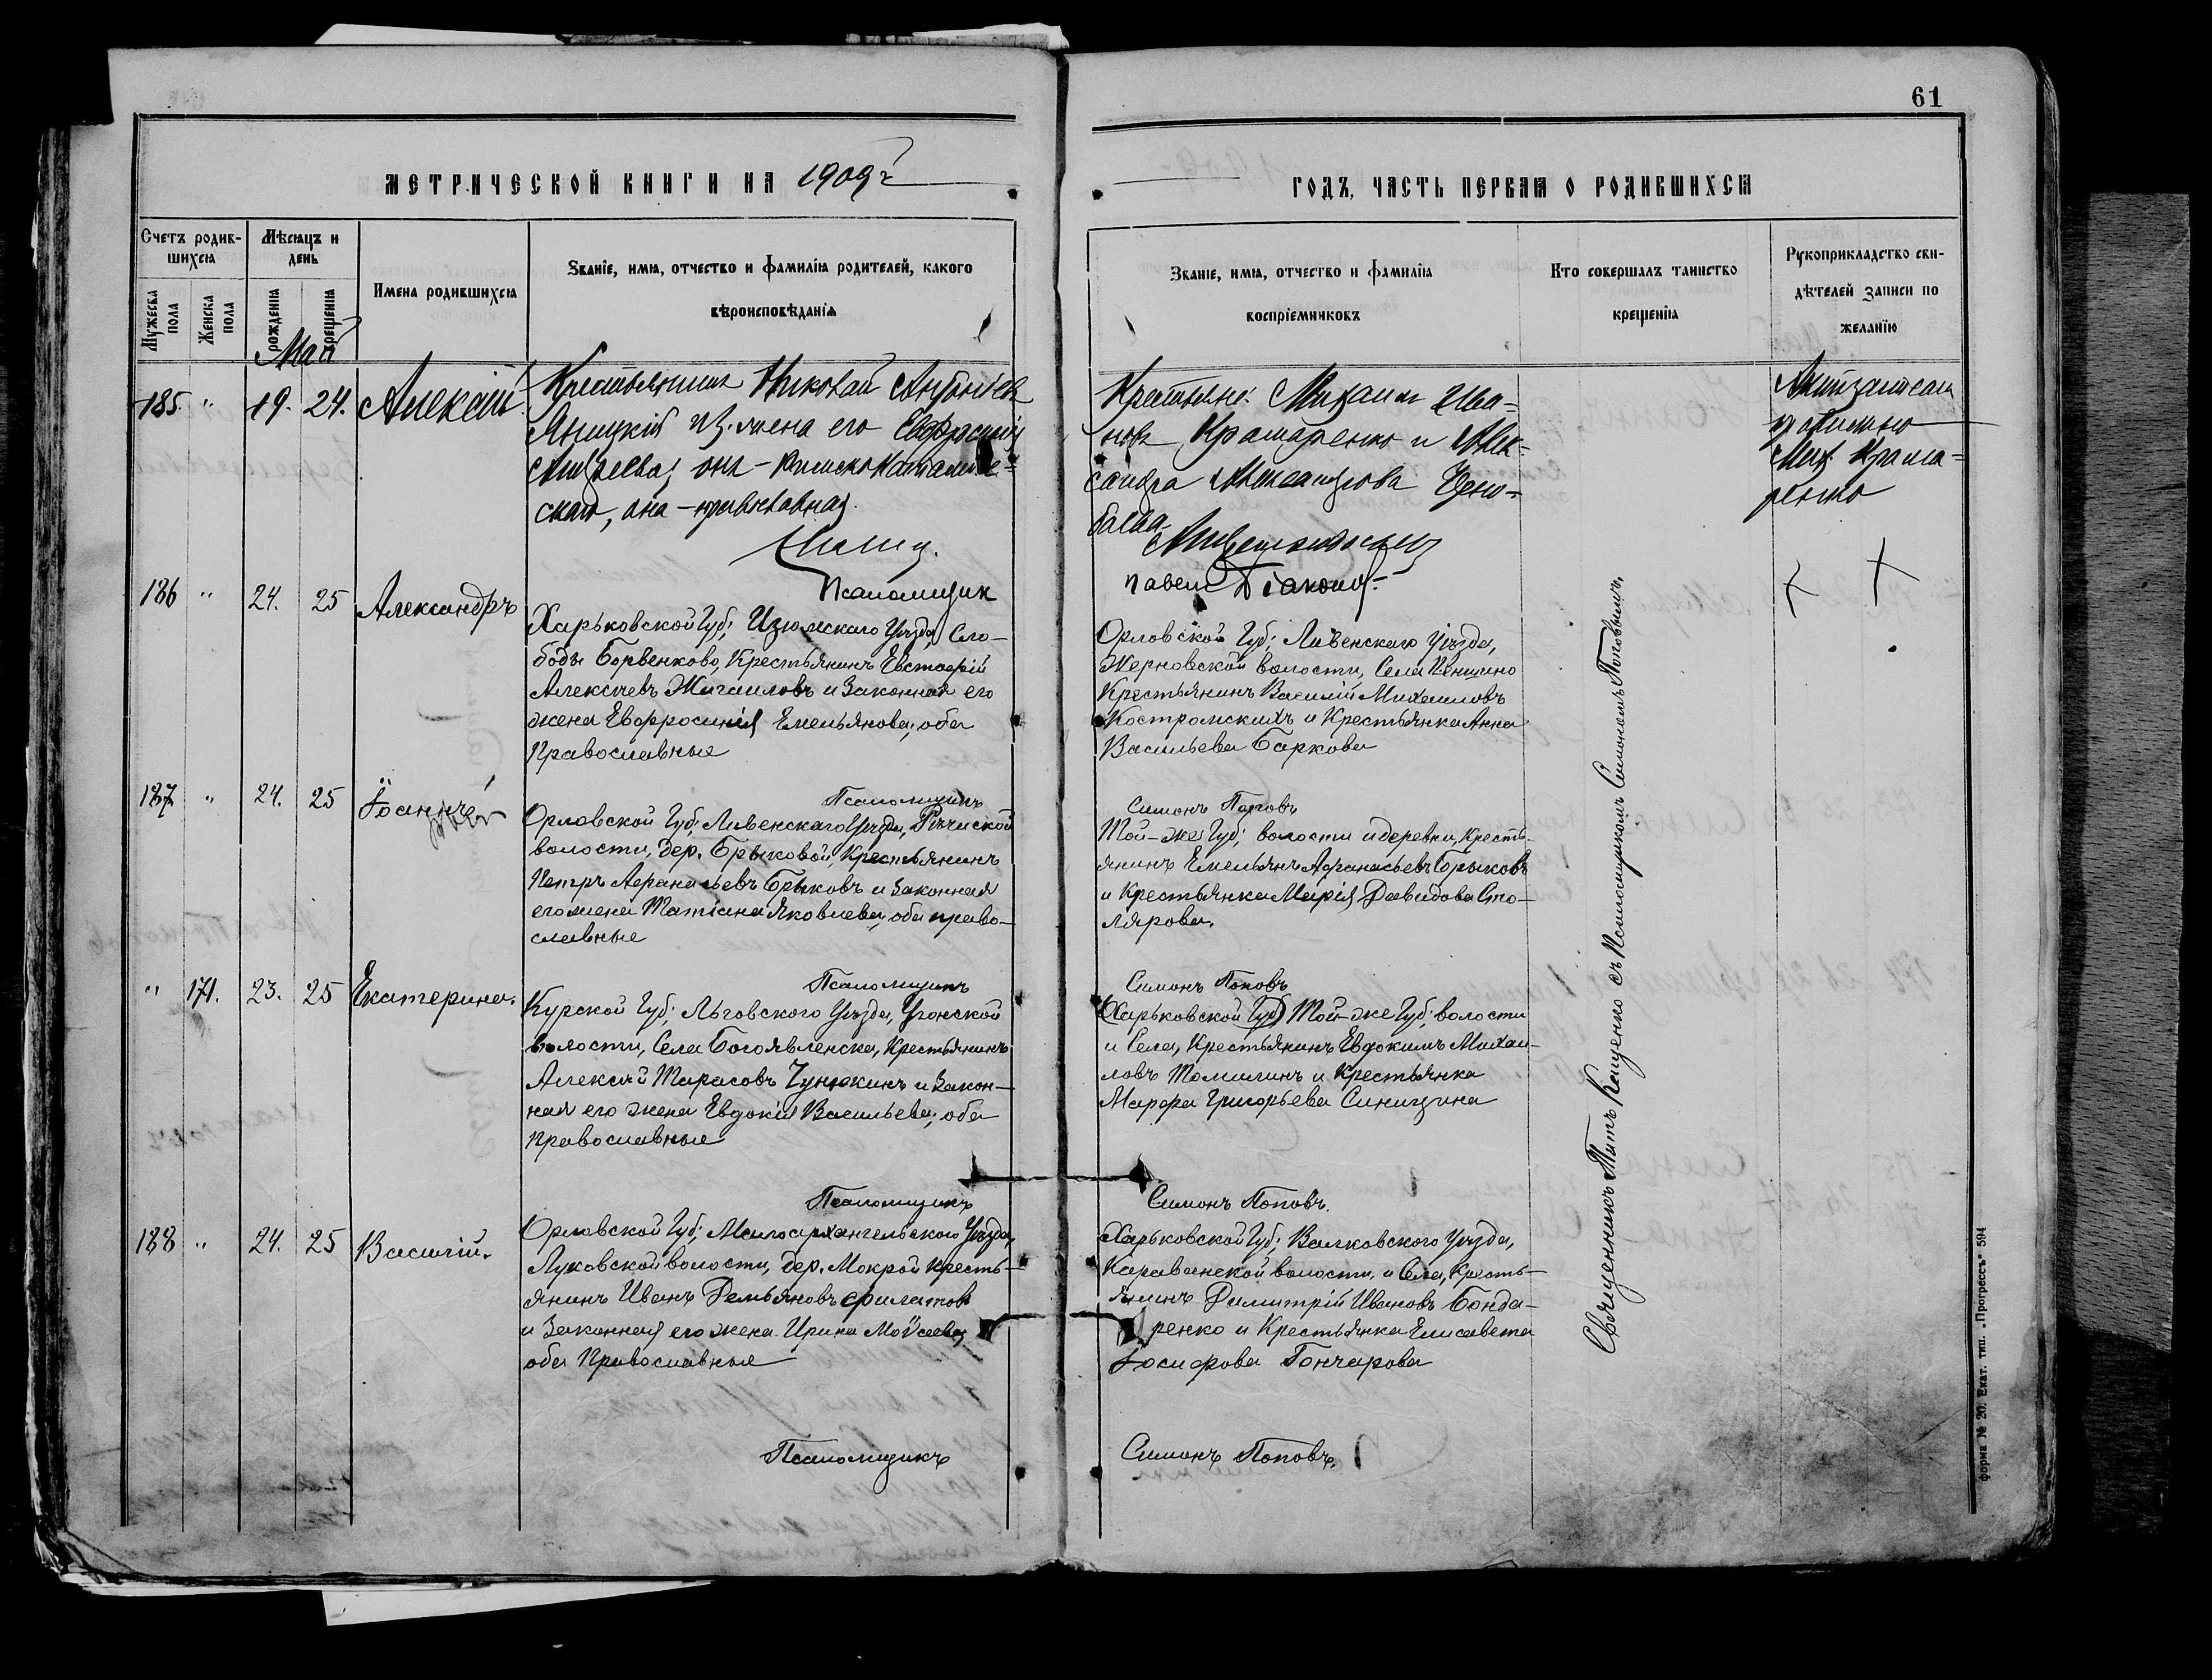 61
МЕТРИЧЕСКОЙ КНИГИ НА 1909 г
ГОДЪ, ЧАСТЬ ПЕРВАЯ О РОДИВШИХСЯ
Счетъ родив-
шихся
Мужеска
пола
Женска
пола
Мѣсяцъ и
день
рожденія
крещенія
Имена родившихся
Званіе, имя, отчество и фамилія родителей, какого
вѣроисповѣданія
Званіе, имя, отчество и фамилія
воспріемниковъ
Кто совершалъ таинство
крещенія
Рукоприкладство сви-
дѣтелей записи по
желанію
Май
185. " 19. 24. Алексій
Крестьянинъ Николай Антоніевъ
его Евфросинія
Андреева, онъ - Римско Католиче-
скаго, она - православная.
Псаломщик
Крестьяне: Михаилъ Ива-
новъ Крамаренко и Алек-
сандра Александрова Черно-
баева
Павелъ Діаконов
Мих. Крама-
ренко
186 " 24. 25 Александръ
Харьковской Губ; Изюмскаго Уѣзда, Сло-
боды Борвенково, Крестьянинъ Евстафій
Алексѣевъ Жигаиловъ и Законная его
жена Евфросинія Емельянова, оба
Православные
Псаломщикъ
Орловской Губ; Ливенскаго Уѣзда,
Жерновской волости, Села Пеньшино
Крестьянинъ Василій Михаиловъ
Костромскихъ и Крестьянка Анна
Васильева Баркова
Симонъ Поповъ
187 " 24. 25 Іоаннъ
Орловской Губ; Ливенскаго Уѣзда, Рѣчиской
волости, дер. Брыковой, Крестьянинъ
Петръ Афанасьевъ Брыковъ и Законная
его жена Татіана Яковлева, оба право-
славные
Псаломщикъ
Той-же Губ; волости и деревни, Кресть-
янинъ Емельянъ Афанасьевъ Брыковъ
и Крестьянка Марія Давидова Сто-
лярова.
Симонъ Поповъ
" 171. 23. 25 Екатерина.
Курской Губ; Льговского Уѣзда, Угонской
волости, Села Богоявленска, Крестьянинъ
Алексѣй Тарасовъ Чунюкинъ и Закон-
ная его жена Евдокія Васильева, оба
Православные
Псаломщикъ
(Харьковской Губ) Той-же Губ; волости
и Села, Крестьянинъ Евдокимъ Михаи-
ловъ Томилинъ и Крестьянка
Марфа Григорьева Синицина
Симонъ Поповъ.
188 " 24. 25 Василій.
Орловской Губ; Малоархангельского Уѣзда,
Луковской волости, дер. Мокрой Кресть-
янинъ Иванъ Демьяновъ Филатовъ
и Законная его жена Ирина Моѵсеева,
оба Православные
Псаломщикъ
Харьковской Губ; Валковского Уѣзда,
Караванской волости и Села, Кресть-
янинъ Димитрій Ивановъ Бонда-
ренко и Крестьянка Елисавета
Іосифова Гончарова
Симонъ Поповъ.
Священникъ Титъ Кащенко съ Псаломщикомъ Симономъ Поповымъ.
форма № 20. Екат. тип. „Прогрессъ“ 594